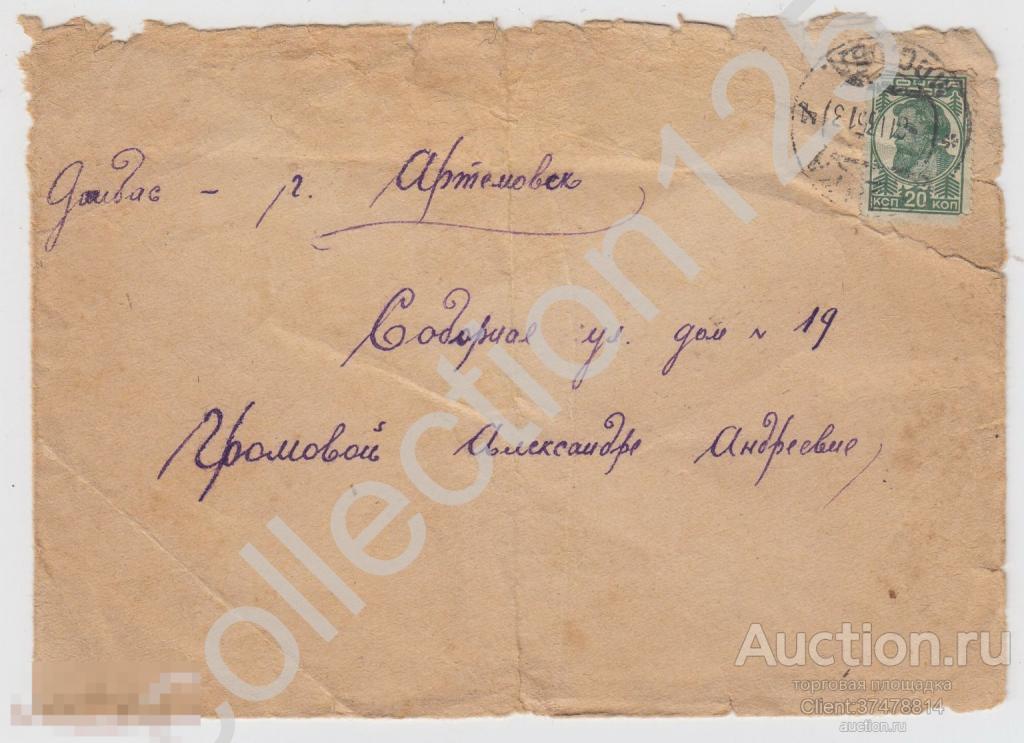 Донбас - г. Артемовск
Соборная ул. дом № 19
Громовой Александре Андреевне
КОП 20 КОП
collection 125
Auction.ru
торговая площадка
Client:37478814
auction.ru